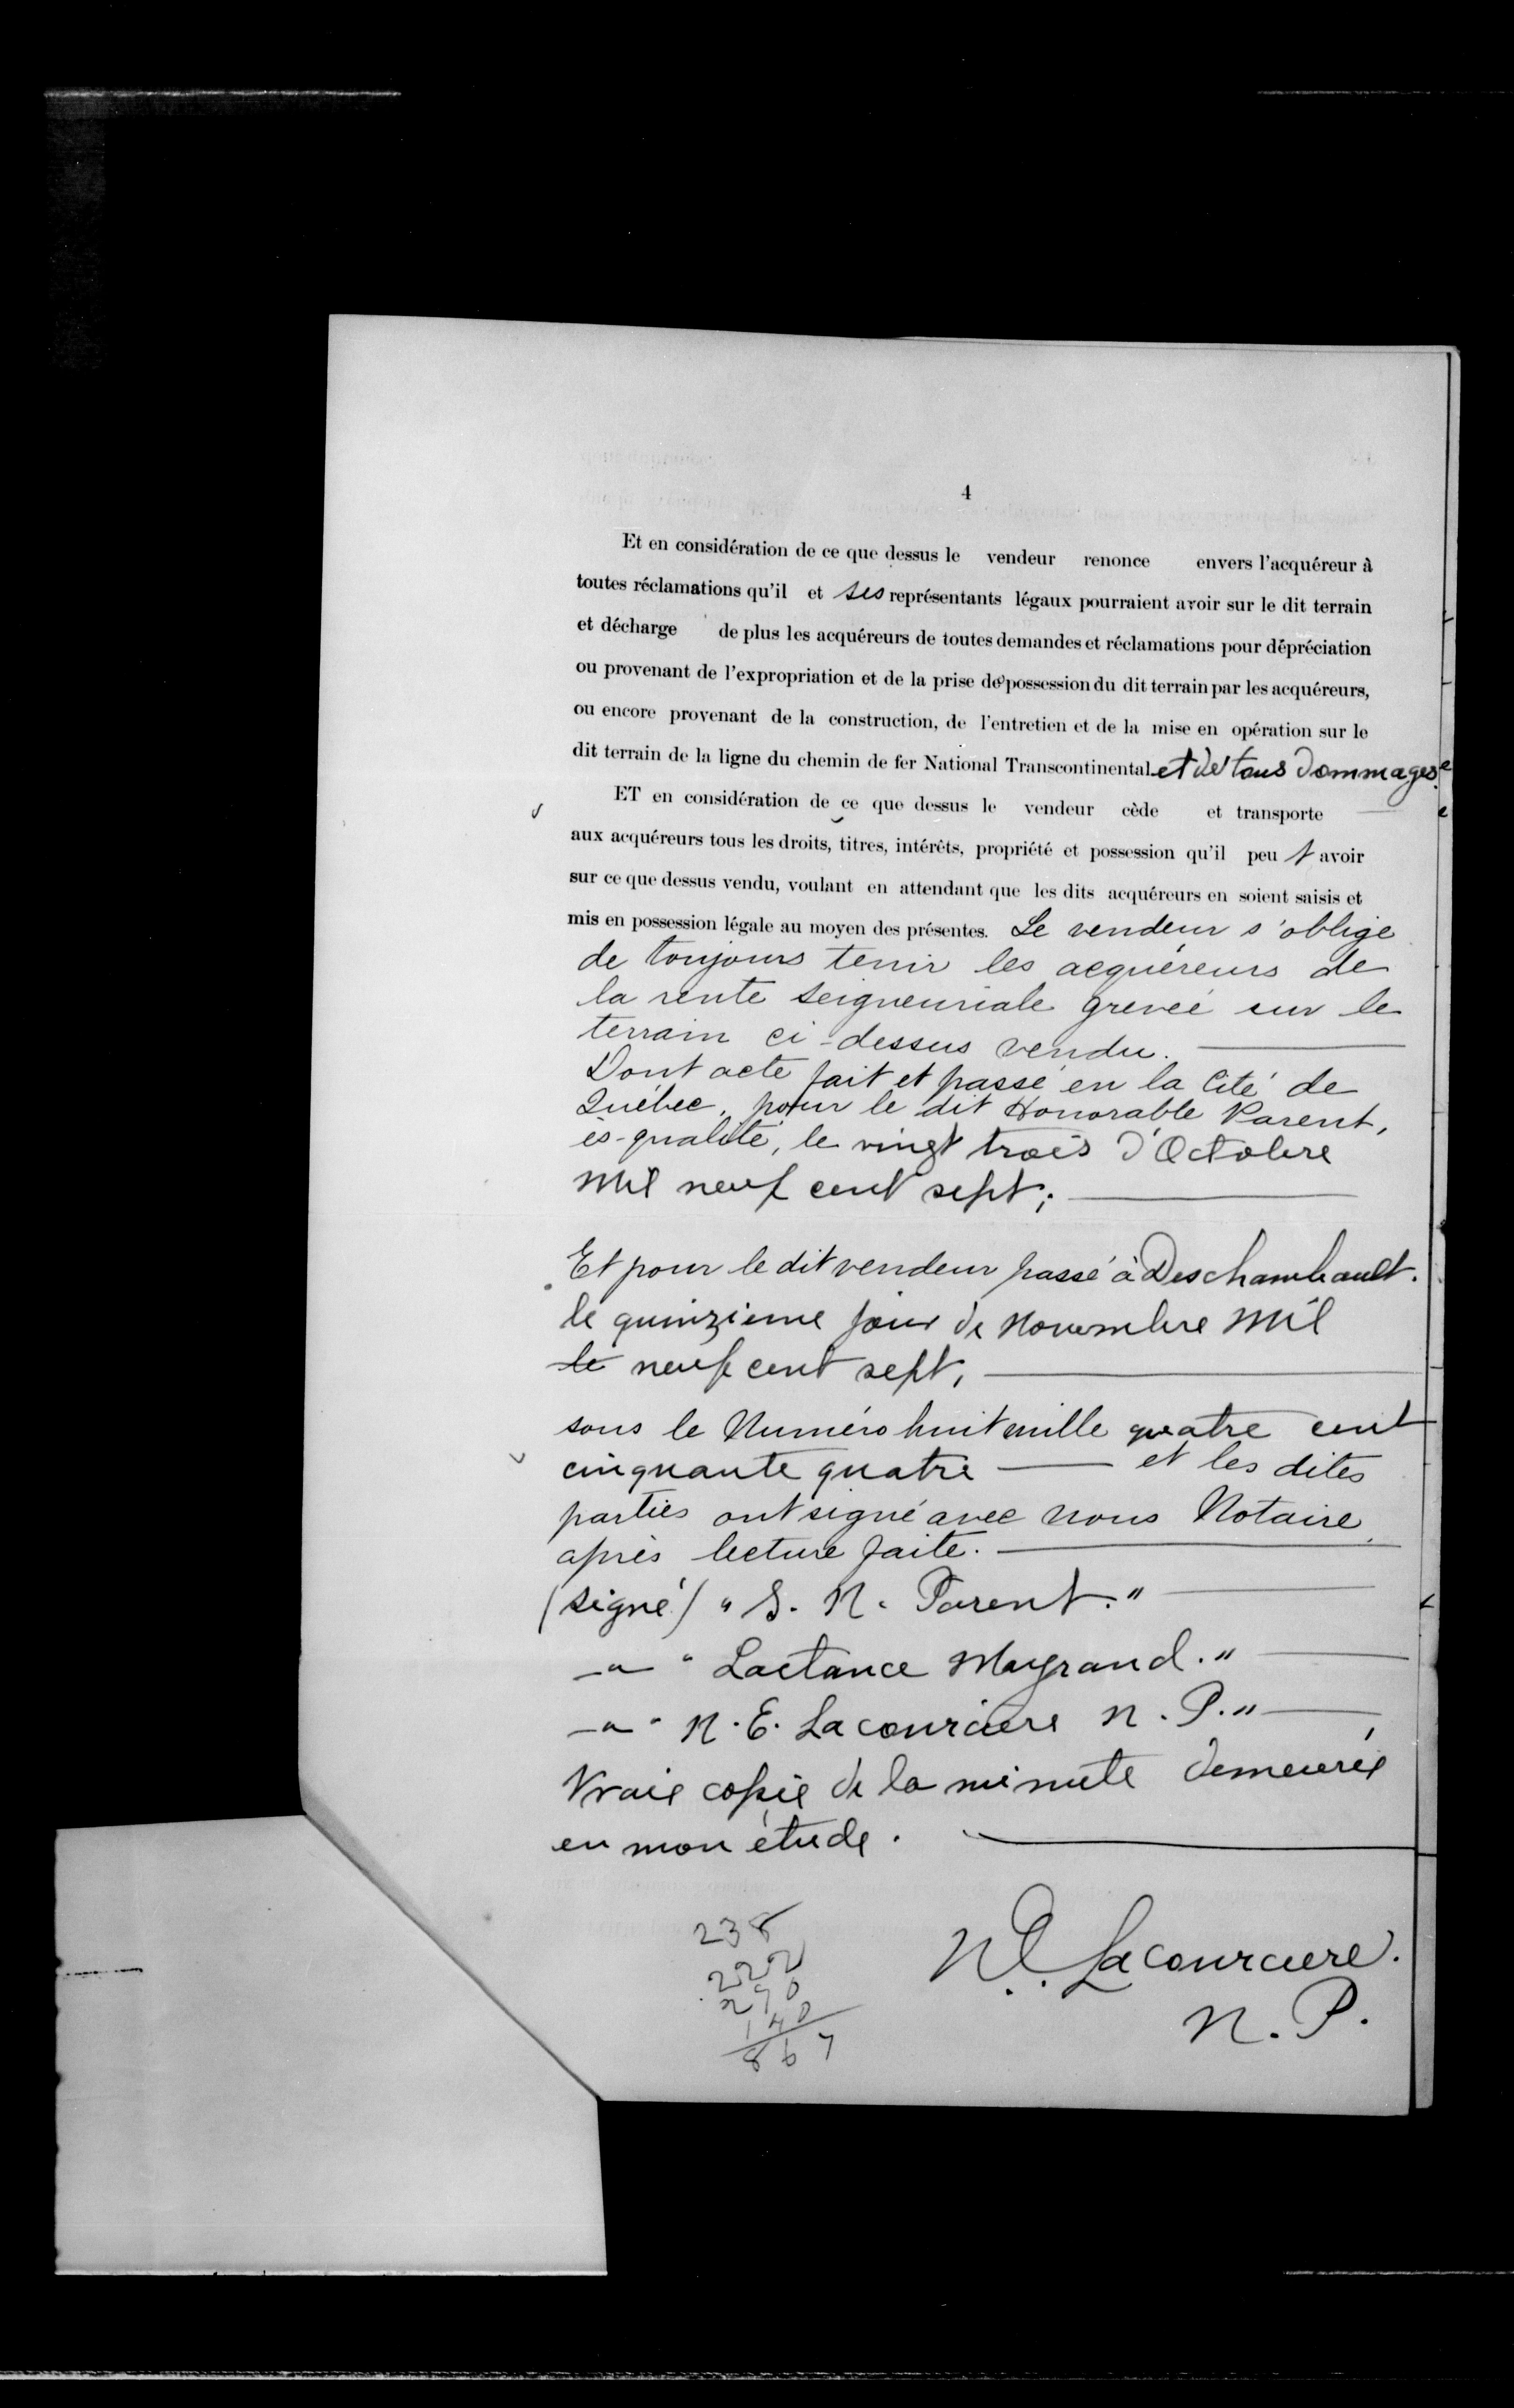 4
Et en considération de ce que dessus le vendeur renonce envers l'acquéreur à
toutes réclamations qu'il et ses représentants légaux pourraient avoir sur le dit terrain
et décharge de plus les acquéreurs de toutes demandes et réclamations pour dépréciation
ou provenant de l'expropriation et de la prise de possession du dit terrain par les acquéreurs,
ou encore provenant de la construction, de l'entretien et de la mise en opération sur le
dit terrain de la ligne du chemin de fer National Transcontinental et de tous dommages.
ET en considération de ce que dessus le vendeur cède et transporte
aux acquéreurs tous les droits, titres, intérêts, propriété et possession qu'il peut avoir
sur ce que dessus vendu, voulant en attendant que les dits acquéreurs en soient saisis et
mis en possession légale au moyen des présentes. Le vendeur s'oblige
de toujours tenir les acquéreurs de
la rente seigneuriale grevée sur le
terrain ci-dessus vendu.
Dont acte fait et passé en la Cité de
Québec, pour le dit Honorable Parent,
ès-qualité, le vingt trois d'Octobre
mil neuf cent sept;
Et pour le dit vendeur passé à Deschambault.
le quinzième jour de Novembre mil
le neuf cent sept,
sous le Numéro huit mille quatre cent
cinquante quatre et les dites
parties ont signé avec nous Notaire
après lecture faite.
(signé) "S. N. Parent."
-"- "Lactance Mayrand."
-"- "N. E. Lacourciere N. P."
Vraie copie de la minute demeurée
en mon étude.
238
222
140
867
N. E. Lacourciere.
N. P.